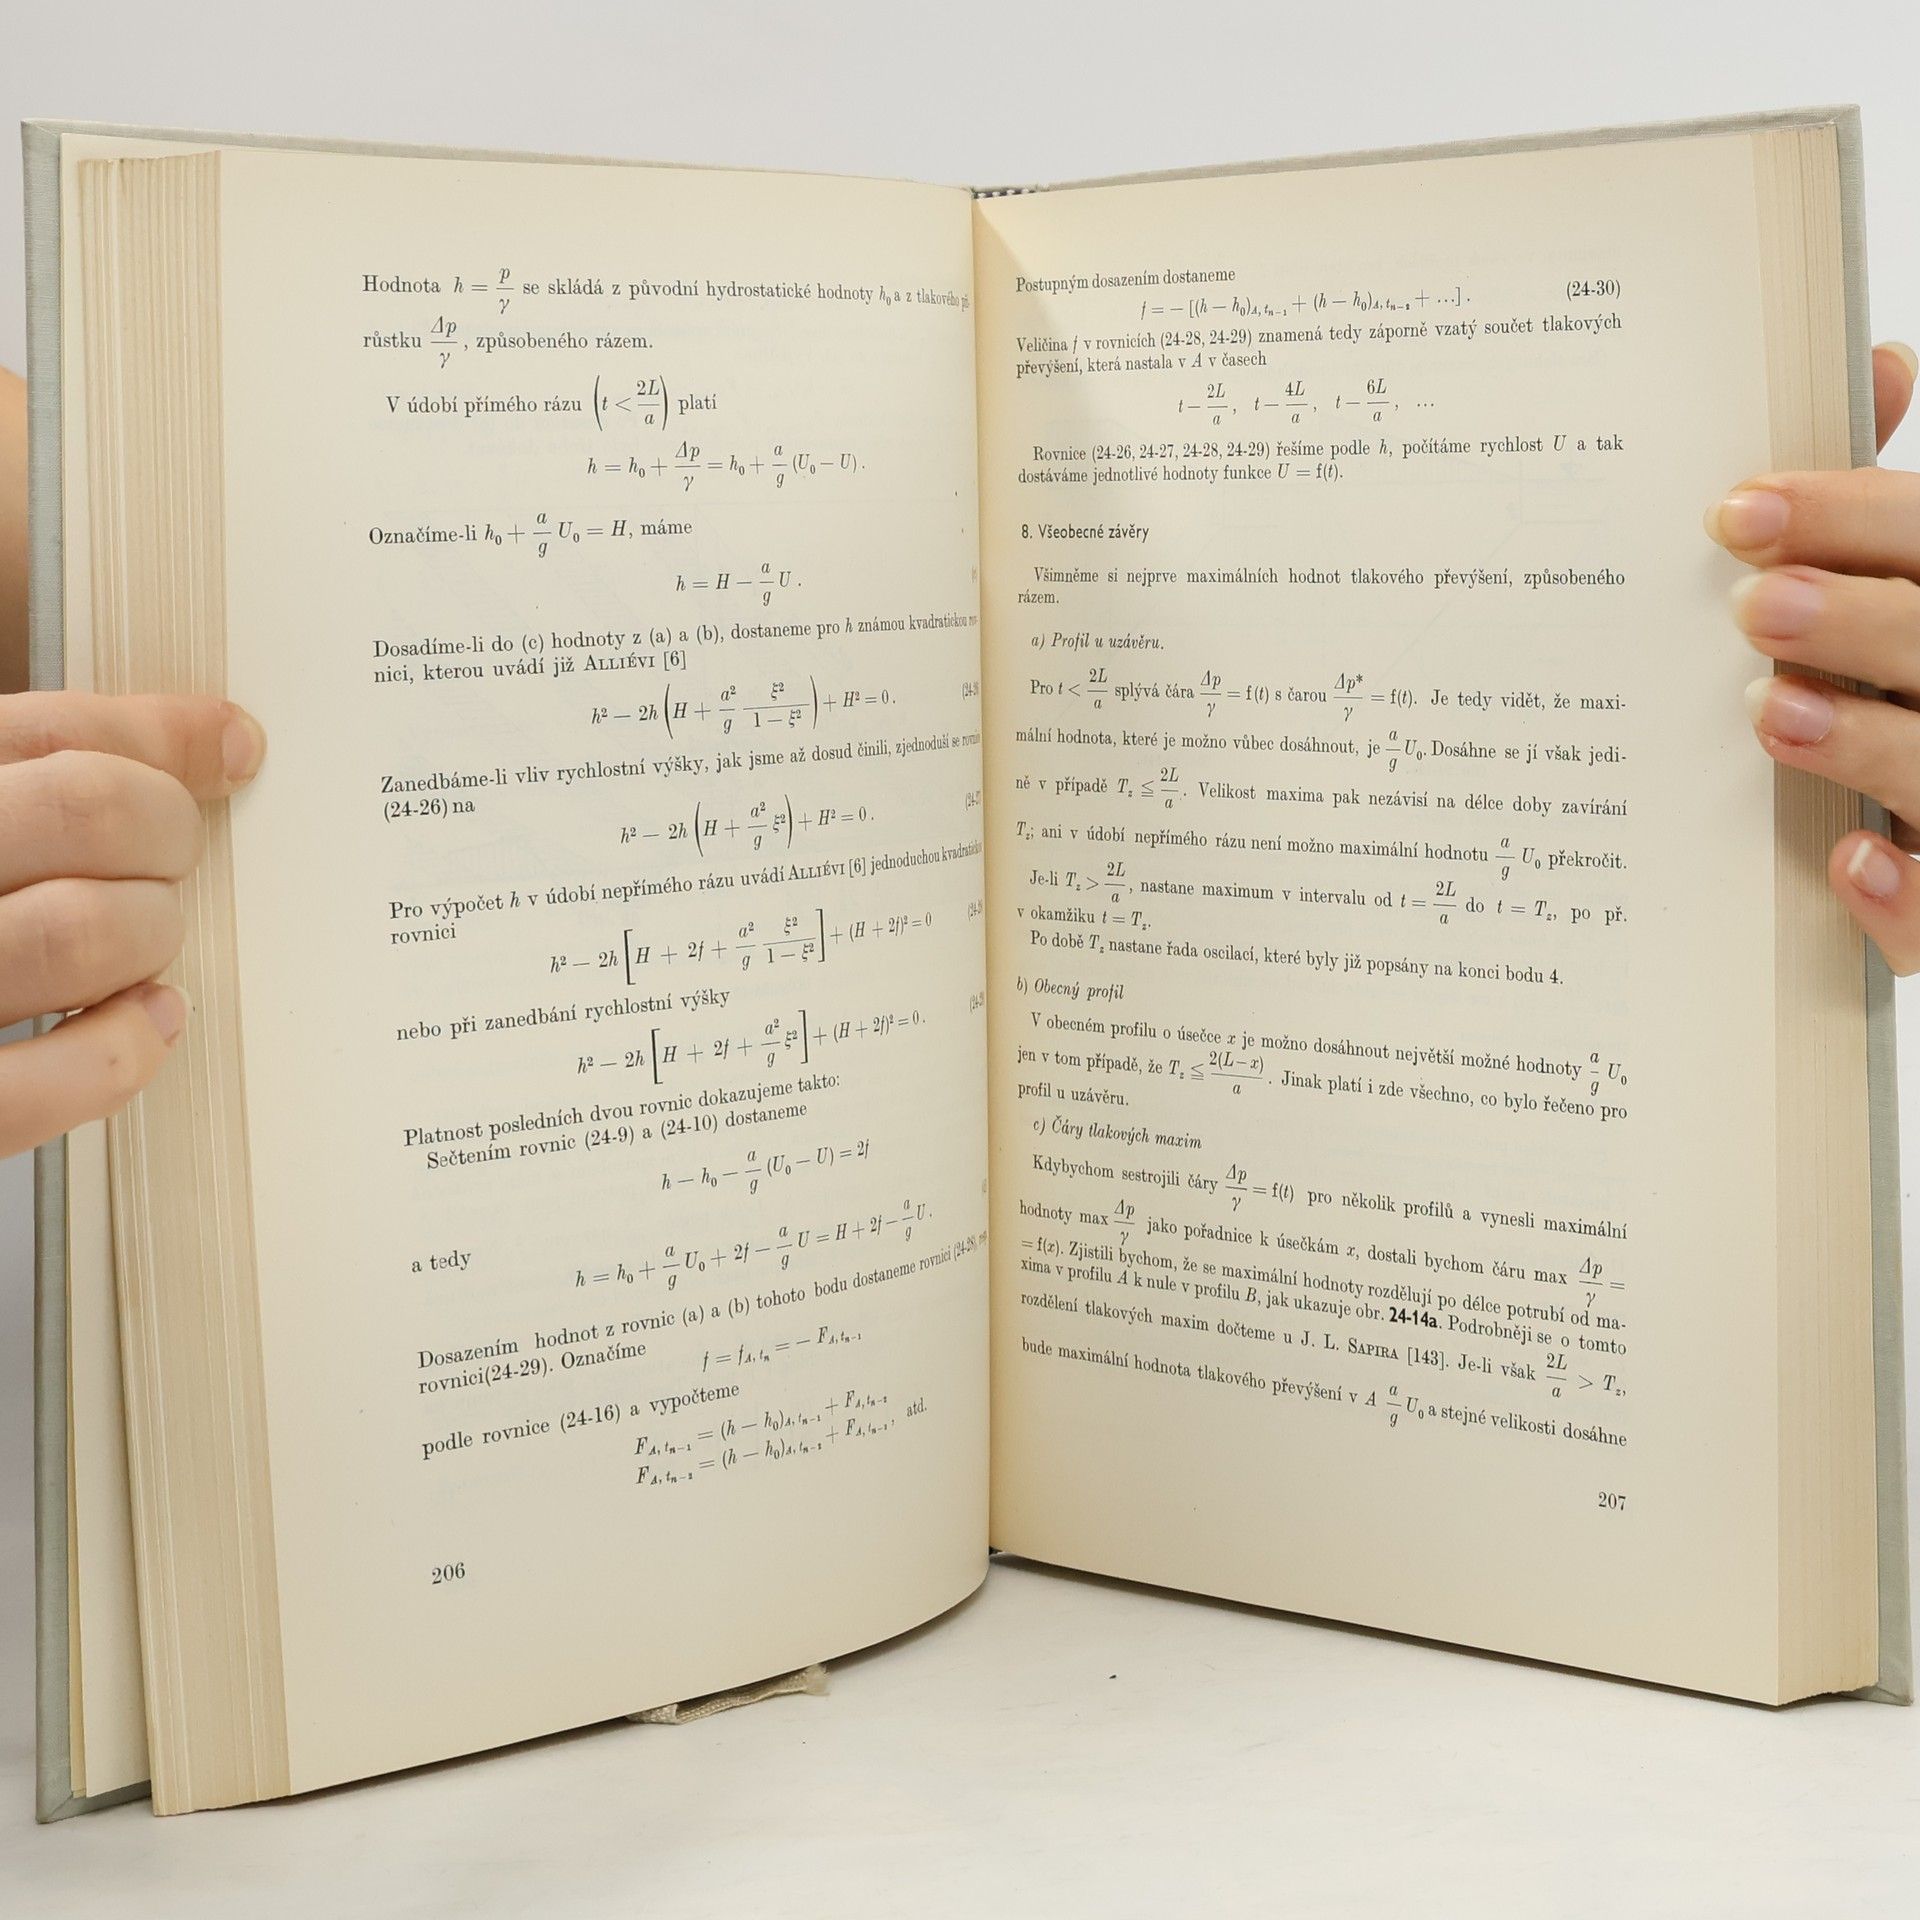 Hodnota h = p/γ se skládá z původní hydrostatické hodnoty h₀ a z tlakového
růstku Δp/γ, způsobeného rázem.
V údobí přímého rázu (t < 2L/a) platí
h = h₀ + Δp/γ = h₀ + a/g (U₀ − U).
Označíme-li h₀ + a/g U₀ = H, máme
h = H − a/g U.
Dosadíme-li do (c) hodnoty z (a) a (b), dostaneme pro h známou kvadratickou rov-
nici, kterou uvádí již ALLIÉVI [6]
h² − 2h (H + a²/g ξ²/(1 − ξ²)) + H² = 0.
Zanedbáme-li vliv rychlostní výšky, jak jsme až dosud činili, zjednoduší se
(24-26) na
h² − 2h (H + a²/g ξ²) + H² = 0.
Pro výpočet h v údobí nepřímého rázu uvádí ALLIÉVI [6] jednoduchou kvadratickou
rovnici
h² − 2h [H + 2f + a²/g ξ²/(1 − ξ²)] + (H + 2f)² = 0
nebo při zanedbání rychlostní výšky
h² − 2h [H + 2f + a²/g ξ²] + (H + 2f)² = 0.
Platnost posledních dvou rovnic dokazujeme takto:
Sečtením rovnic (24-9) a (24-10) dostaneme
h − h₀ − a/g (U₀ − U) = 2f
a tedy
h = h₀ + a/g U₀ + 2f − a/g U = H + 2f − a/g U.
Dosazením hodnot z rovnic (a) a (b) tohoto bodu dostaneme rovnici (24-28),
rovnici(24-29). Označíme
f = f_A, tₙ = − F_A, tₙ₋₁
podle rovnice (24-16) a vypočteme
F_A, tₙ₋₁ = (h − h₀)_A, tₙ₋₁ + F_A, tₙ₋₂
F_A, tₙ₋₂ = (h − h₀)_A, tₙ₋₂ + F_A, tₙ₋₃, atd.
206
Postupným dosazením dostaneme
f = − [(h − h₀)_A, tₙ₋₁ + (h − h₀)_A, tₙ₋₂ + ...]. (24-30)
Veličina f v rovnicích (24-28, 24-29) znamená tedy záporně vzatý součet tlakových
převýšení, která nastala v A v časech
t − 2L/a, t − 4L/a, t − 6L/a, ...
Rovnice (24-26, 24-27, 24-28, 24-29) řešíme podle h, počítáme rychlost U a tak
dostáváme jednotlivé hodnoty funkce U = f(t).
8. Všeobecné závěry
Všimněme si nejprve maximálních hodnot tlakového převýšení, způsobeného
rázem.
a) Profil u uzávěru.
Pro t < 2L/a splývá čára Δp/γ = f(t) s čarou Δp*/γ = f(t). Je tedy vidět, že maxi-
mální hodnota, které je možno vůbec dosáhnout, je a/g U₀. Dosáhne se jí však jedi-
ně v případě T_z ≦ 2L/a. Velikost maxima pak nezávisí na délce doby zavírání
T_z; ani v údobí nepřímého rázu není možno maximální hodnotu a/g U₀ překročit.
Je-li T_z > 2L/a, nastane maximum v intervalu od t = 2L/a do t = T_z, po př.
v okamžiku t = T_z.
Po době T_z nastane řada oscilací, které byly již popsány na konci bodu 4.
b) Obecný profil
V obecném profilu o úsečce x je možno dosáhnout největší možné hodnoty a/g U₀
jen v tom případě, že T_z ≦ 2(L−x)/a. Jinak platí i zde všechno, co bylo řečeno pro
profil u uzávěru.
c) Čáry tlakových maxim
Kdybychom sestrojili čáry Δp/γ = f(t) pro několik profilů a vynesli maximální
hodnoty max Δp/γ jako pořadnice k úsečkám x, dostali bychom čáru max Δp/γ =
= f(x). Zjistili bychom, že se maximální hodnoty rozdělují po délce potrubí od ma-
xima v profilu A k nule v profilu B, jak ukazuje obr. 24-14a. Podrobněji se o tomto
rozdělení tlakových maxim dočteme u J. L. SAPIRA [143]. Je-li však 2L/a > T_z,
bude maximální hodnota tlakového převýšení v A a/g U₀ a stejné velikosti dosáhne
207